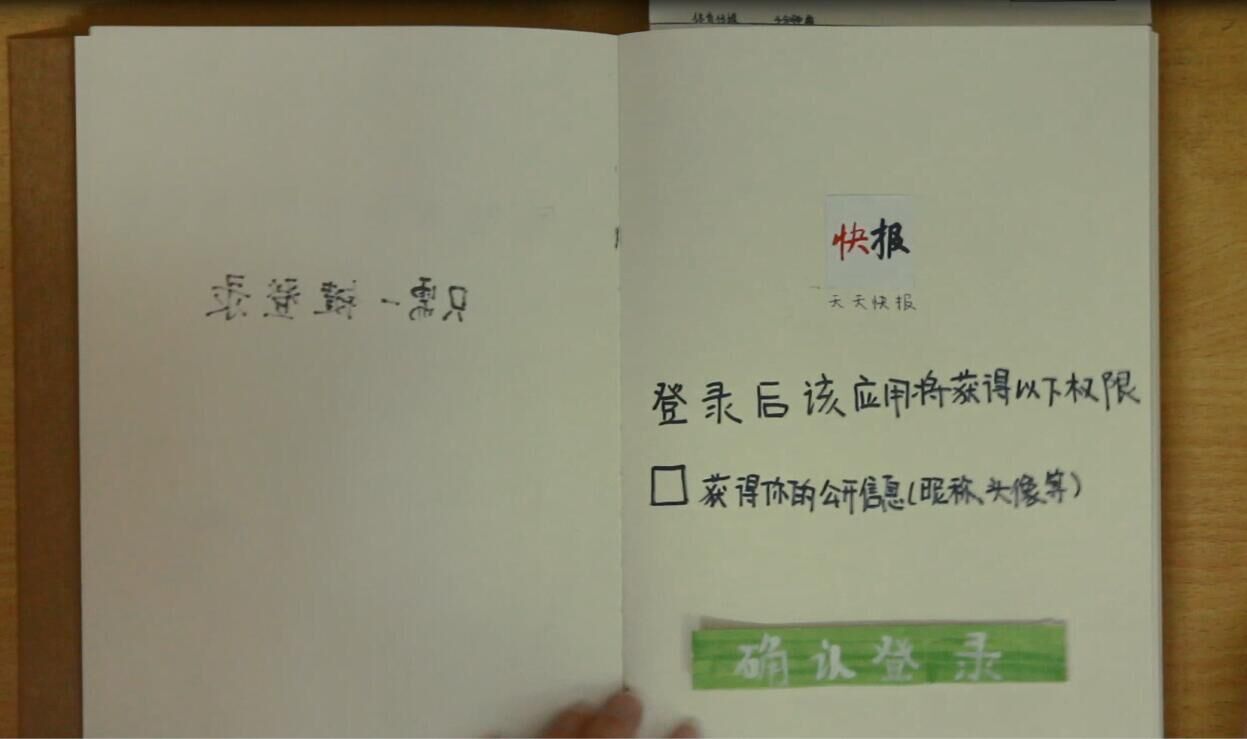 只需一键登录
快报
天天快报
登录后该应用将获得以下权限
获得你的公开信息(昵称、头像等)
确认登录